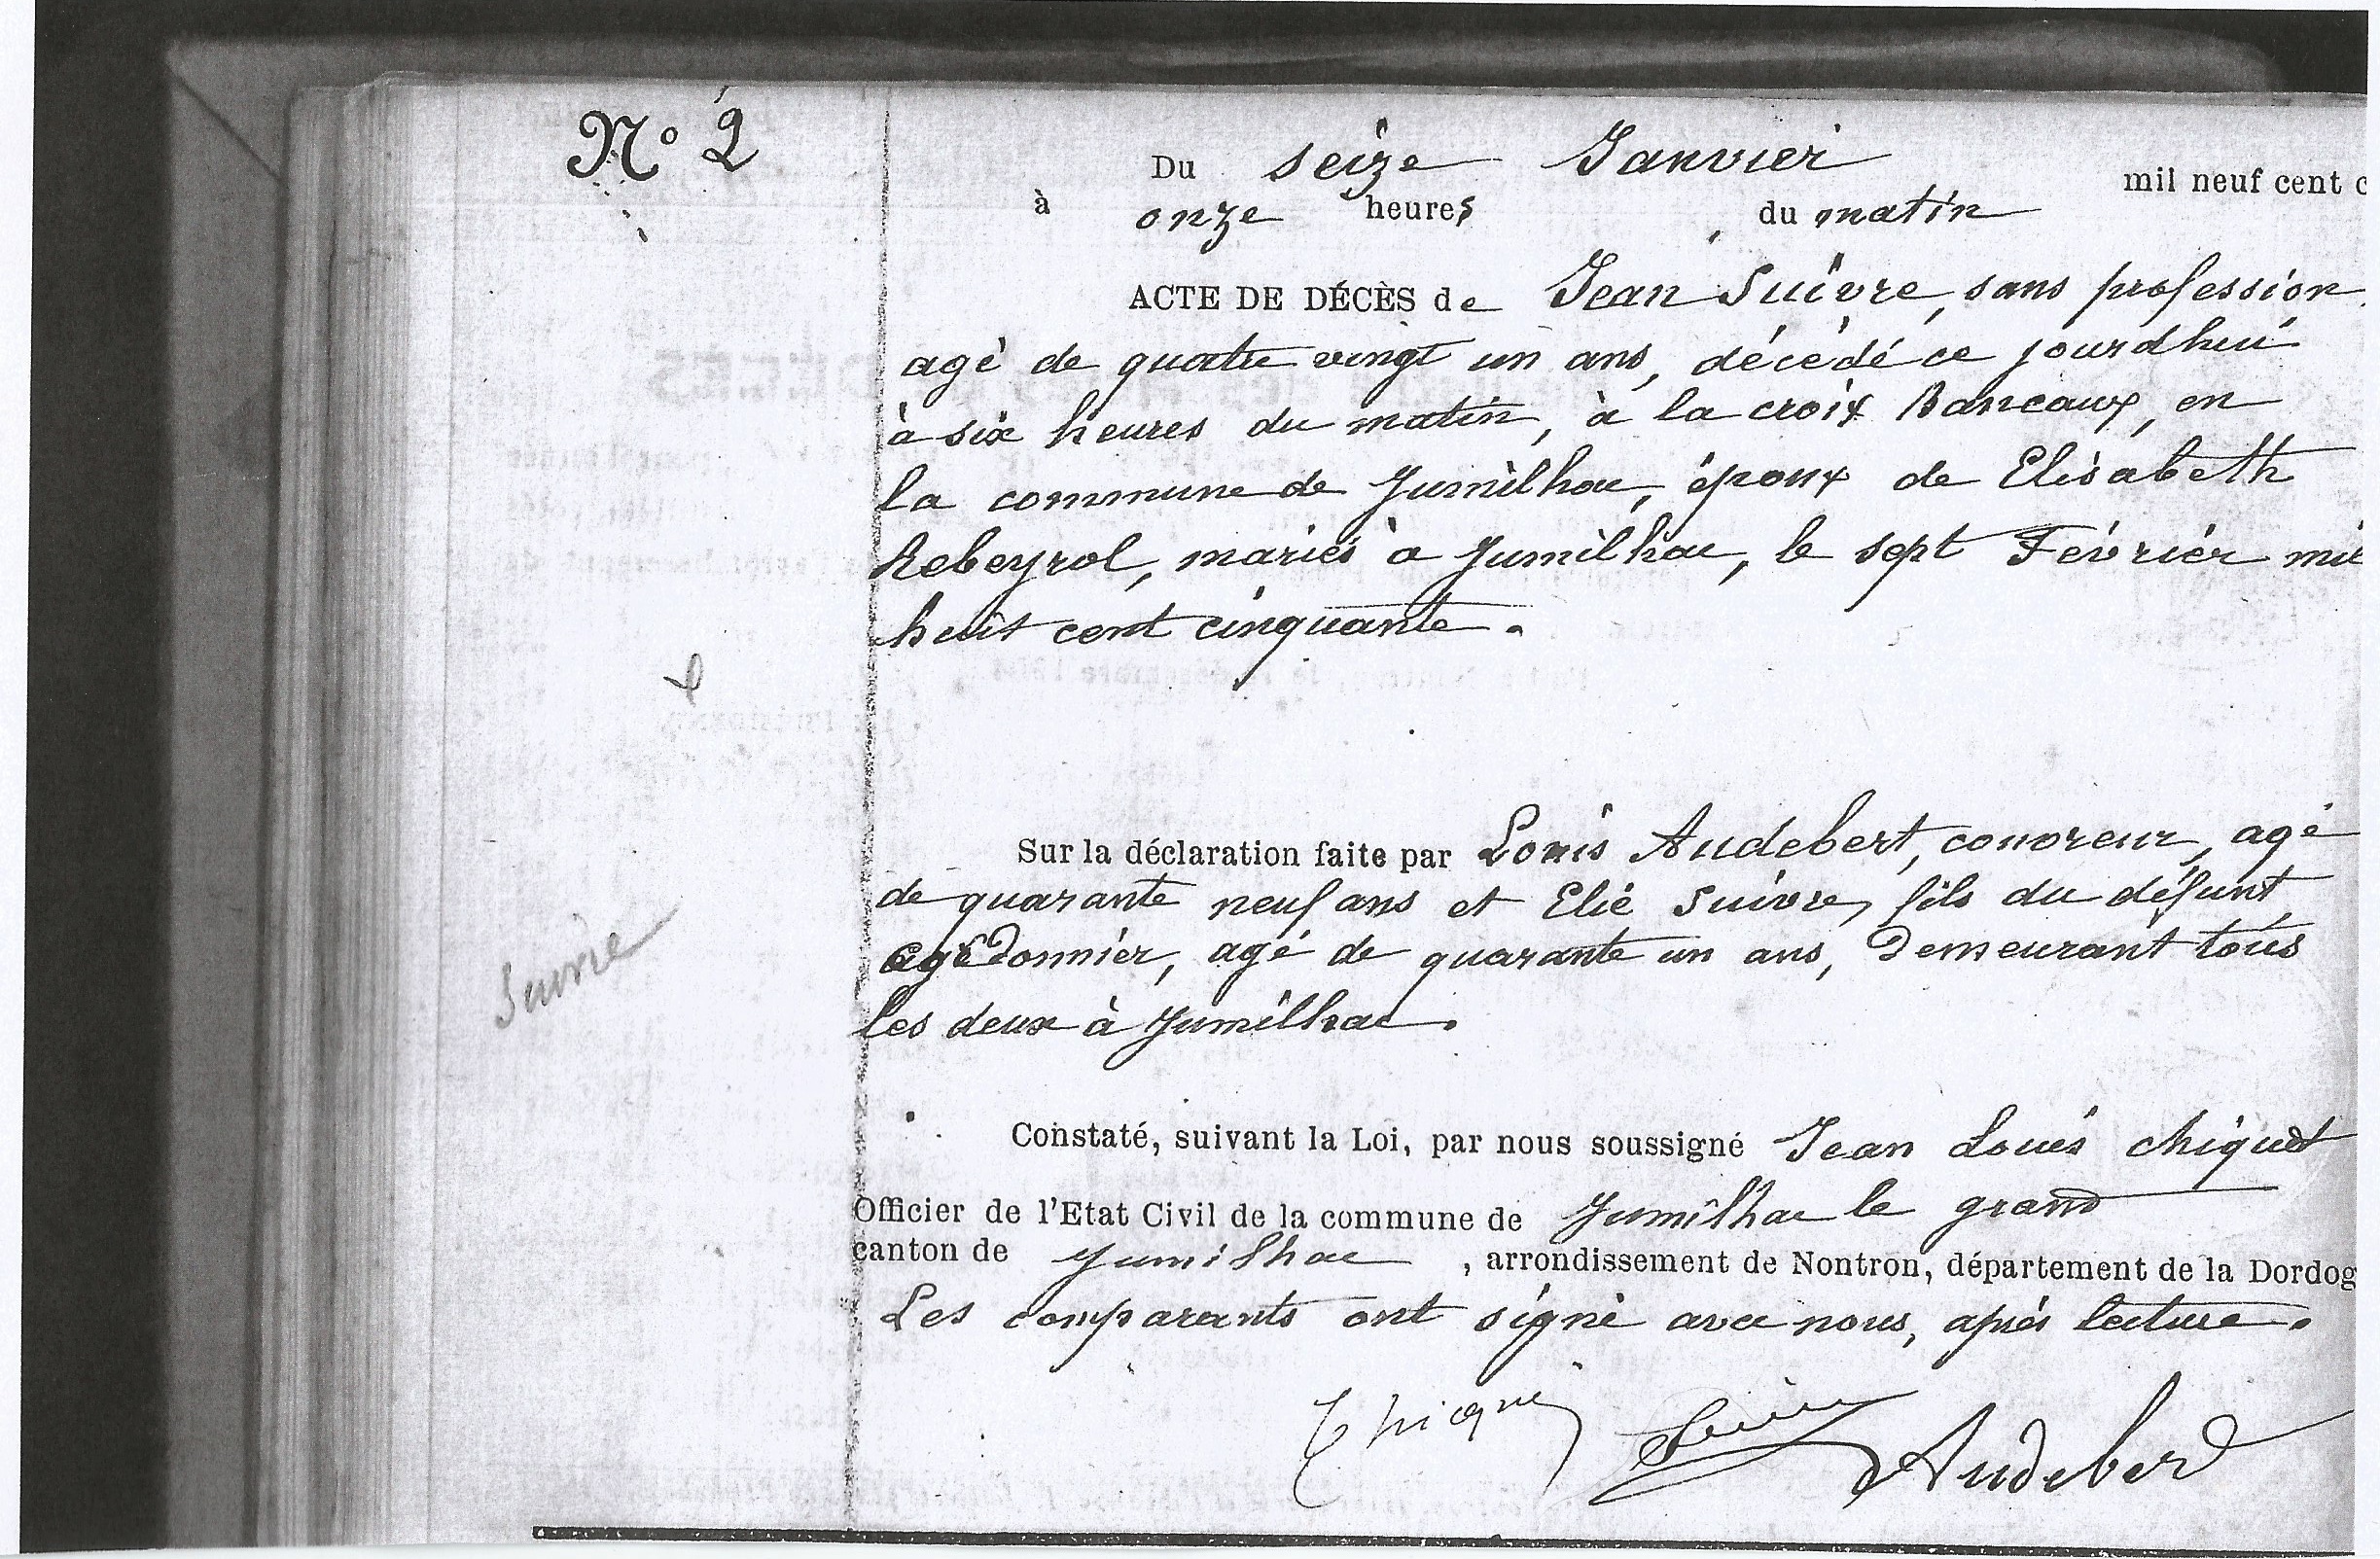 N° 2
Du seize Janvier mil neuf cent c
à onze heures du matin
ACTE DE DÉCÈS de Jean Suivre, sans profession
agé de quatre vingt un ans, décédé ce jourdhui
à six heures du matin, à la croix Bancaux, en
la commune de Jumilhac, époux de Elisabeth
Rebeyrol, mariés à Jumilhac, le sept Février mil
huit cent cinquante.
Sur la déclaration faite par Louis Audebert, couvreur, agé
de quarante neuf ans et Elie Suivre, fils du défunt,
cordonnier, agé de quarante un ans, Demeurant tous
les deux à Jumilhac.
Suivre
Constaté, suivant la Loi, par nous soussigné Jean Louis chiquet
Officier de l'Etat Civil de la commune de Jumilhac le grand
canton de Jumilhac, arrondissement de Nontron, département de la Dordog
Les comparants ont signé avec nous, après lecture.
Suivre Audeber